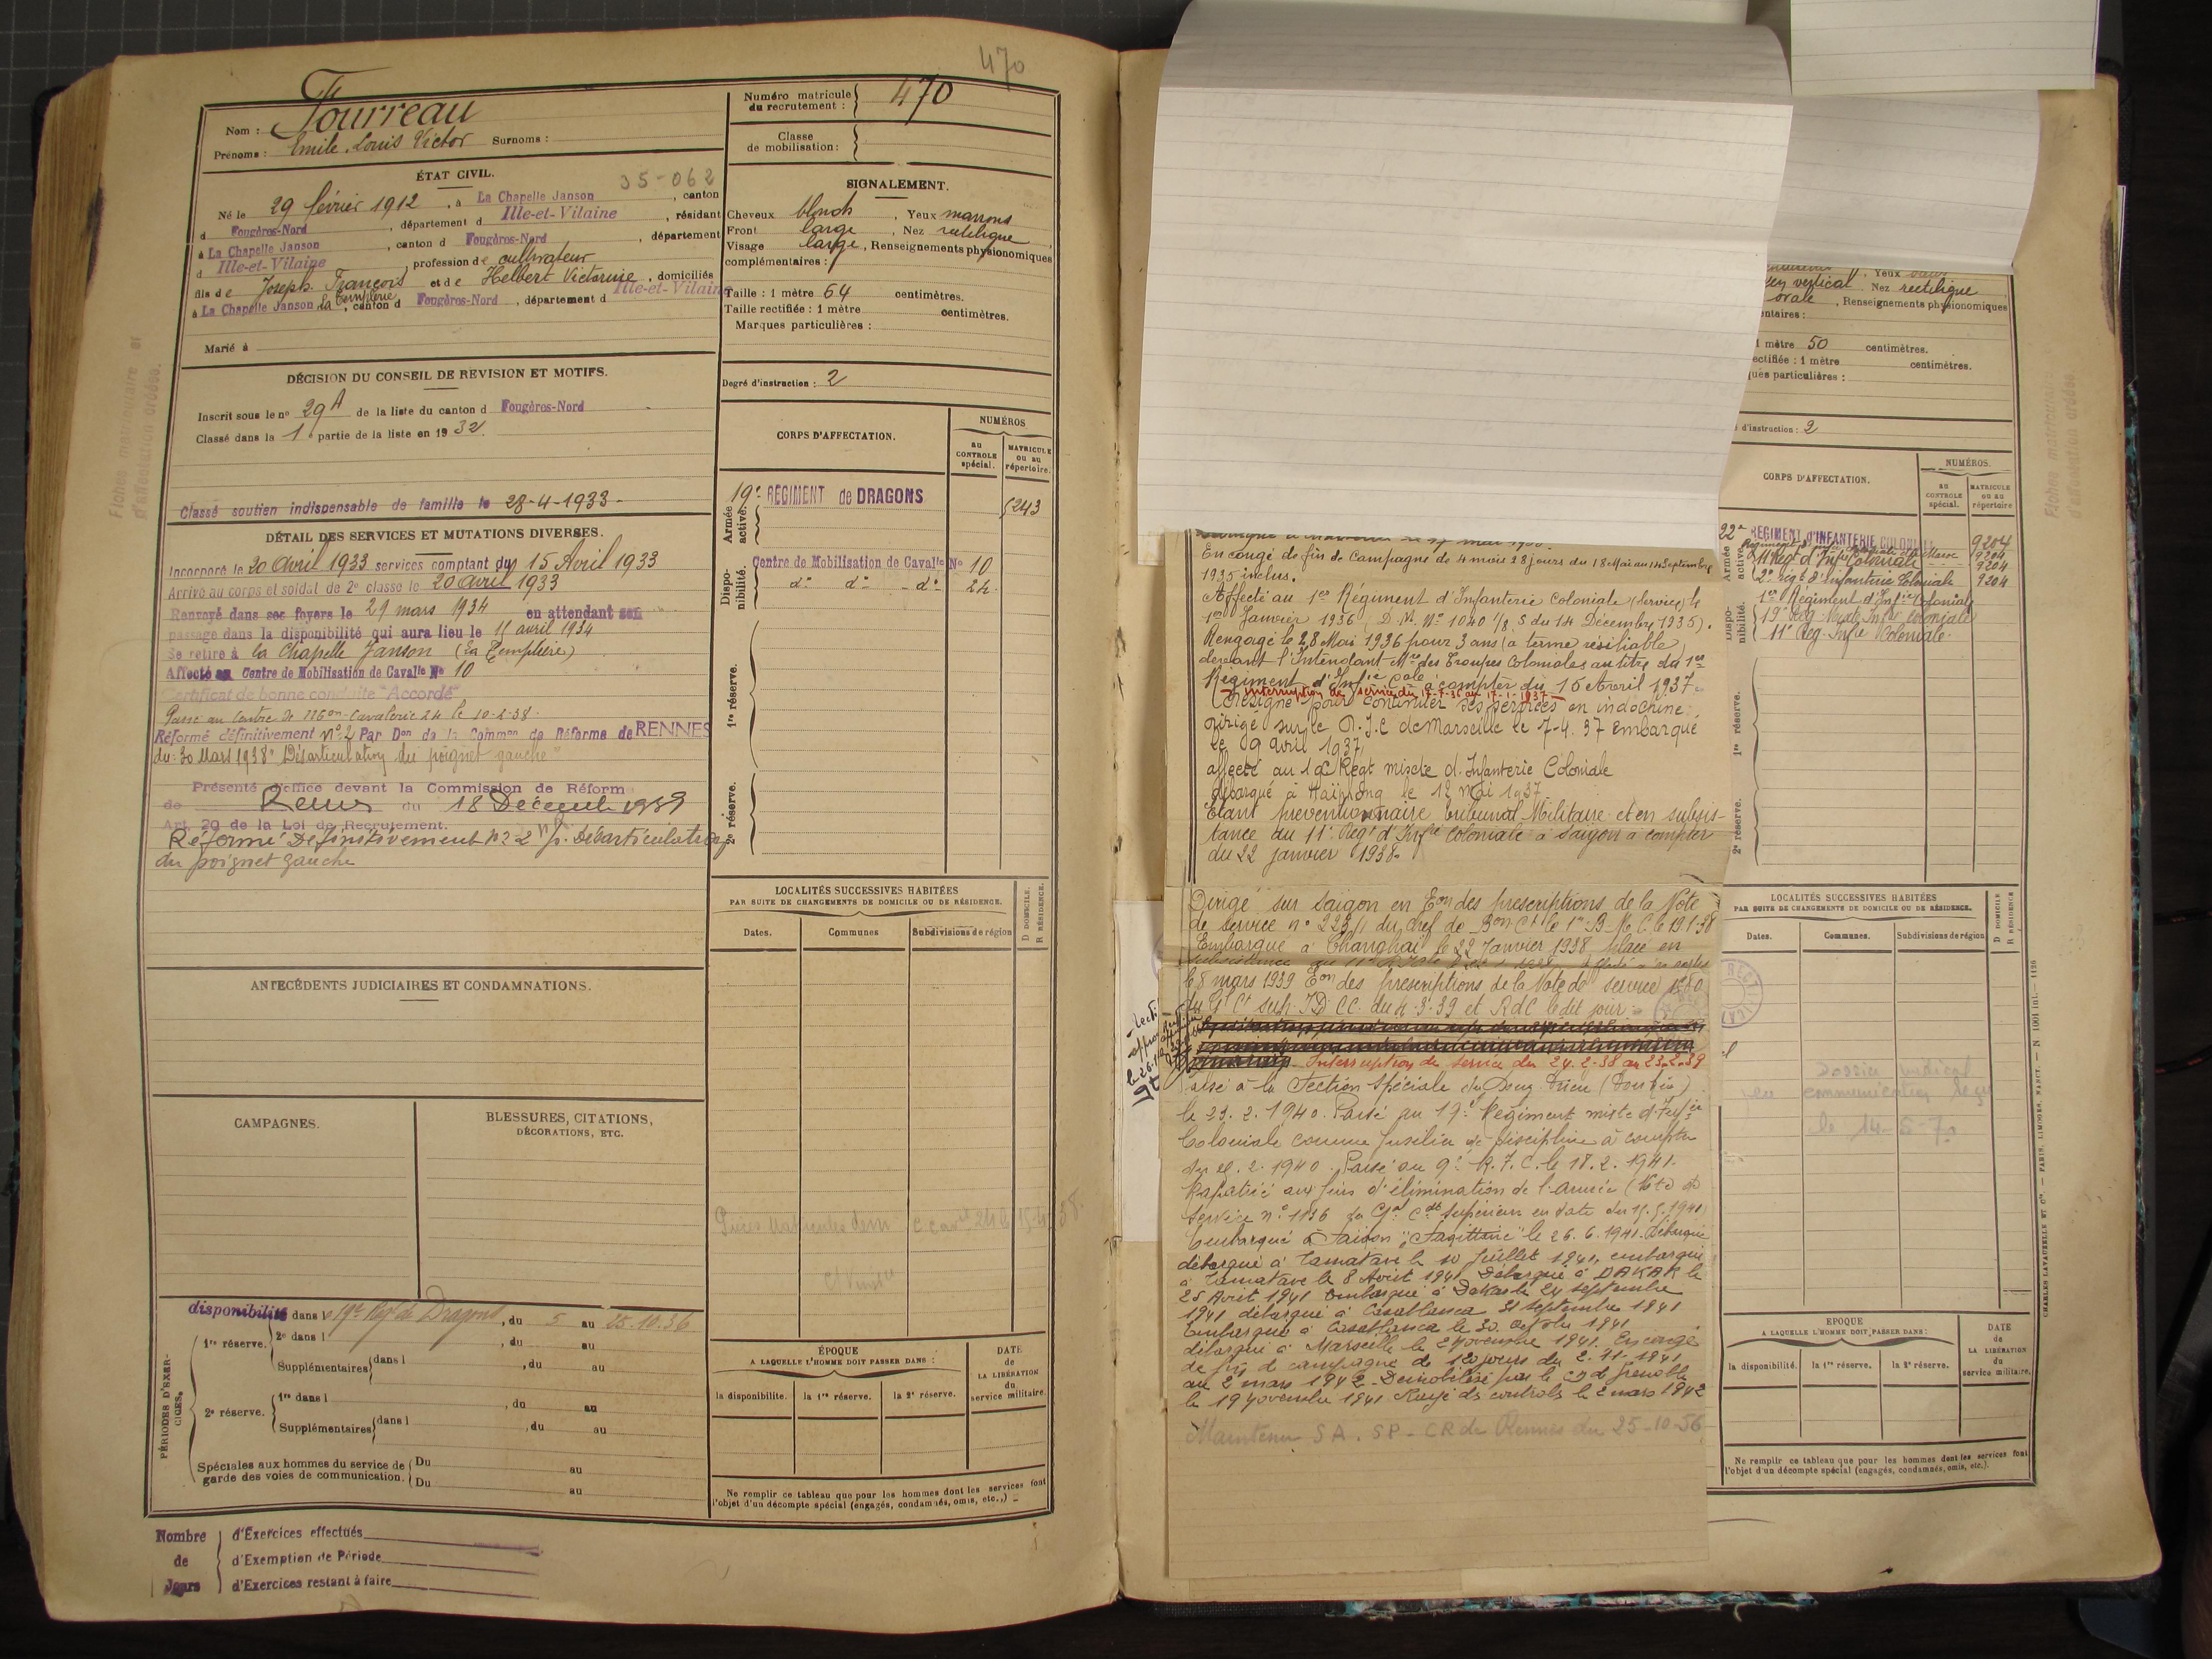 470
Nom : Fourreau
Prénoms : Emile, Louis Victor Surnoms :
Numéro matricule du recrutement : 470
Classe de mobilisation :
ÉTAT CIVIL.
35-062
Né le 29 février 1912, à La Chapelle Janson, canton
d Fougères-Nord, département d Ille-et-Vilaine, résidant
à La Chapelle Janson, canton d Fougères-Nord, département
d Ille-et-Vilaine, profession de cultivateur
fils de Joseph François et de Helbert Victorine, domiciliés
à La Chapelle Janson la Templerie, canton d Fougères-Nord, département d Ille-et-Vilaine
Marié à
SIGNALEMENT.
Cheveux blonds, Yeux marrons
Front large, Nez rectiligne
Visage large, Renseignements physionomiques
complémentaires :
Taille : 1 mètre 64 centimètres.
Taille rectifiée : 1 mètre centimètres.
Marques particulières :
Degré d'instruction : 2
DÉCISION DU CONSEIL DE REVISION ET MOTIFS.
Inscrit sous le no 29A de la liste du canton d Fougères-Nord
Classé dans la 1 partie de la liste en 1932.
Classé soutien indispensable de famille le 28-4-1933-
DÉTAIL DES SERVICES ET MUTATIONS DIVERSES.
Incorporé le 20 Avril 1933 services comptant du 15 Avril 1933
Arrivé au corps et soldat de 2e classe le 20 avril 1933
Renvoyé dans ses foyers le 29 mars 1934 en attendant son
passage dans la disponibilité qui aura lieu le 11 avril 1934
Se retire à la Chapelle Janson (La Templerie)
Affecté au Centre de Mobilisation de Cavalie No 10
Certificat de bonne conduite "Accordé"
Passé au Centre de Mobon Cavalerie 24 le 10-2-38.
Réformé définitivement no 2 Par Don de la Common de Réforme de RENNES
du : 30 Mars 1938 "Désarticulation du poignet gauche"
Présenté d'office devant la Commission de Réforme
de Rennes du 18 Décembre 1939
Art. 20 de la Loi de Recrutement.
Réformé Définitivement No 2 n/p. Désarticulation
du poignet gauche
ANTÉCÉDENTS JUDICIAIRES ET CONDAMNATIONS.
CAMPAGNES.
BLESSURES, CITATIONS,
DÉCORATIONS, ETC.
PÉRIODES D'EXERCICES.
disponibilité dans le 19e Rég de Dragons, du 5 au 25.10.36
1re réserve. 2e dans l , du au
Supplémentaires dans l , du au
2e réserve. 1re dans l , du au
Supplémentaires dans l , du au
Spéciales aux hommes du service de garde des voies de communication. Du au
Du au
Nombre de Jours
d'Exercices effectués
d'Exemption de Période
d'Exercices restant à faire
CORPS D'AFFECTATION.
NUMÉROS
au CONTROLE spécial.
MATRICULE ou au répertoire.
Armée active.
19e REGIMENT de DRAGONS 5243
Disponibilité.
Centre de Mobilisation de Cavalie No 10
do do do 24.
1re réserve.
2e réserve.
LOCALITÉS SUCCESSIVES HABITÉES
PAR SUITE DE CHANGEMENTS DE DOMICILE OU DE RÉSIDENCE.
Dates.
Communes
Subdivisions de région
D DOMICILE.
R RÉSIDENCE.
ÉPOQUE
A LAQUELLE L'HOMME DOIT PASSER DANS :
la disponibilité.
la 1re réserve.
la 2e réserve.
DATE de LA LIBÉRATION du service militaire.
Ne remplir ce tableau que pour les hommes dont les services font
l'objet d'un décompte spécial (engagés, condamnés, omis, etc.,)
Fiches matriculaire et
d'affectation créées.
En congé de fin de Campagne de 4 mois 28 jours du 18 Mai au 14 Septembre
1935 inclus.
Affecté au 1er Régiment d'Infanterie Coloniale (Service) le
1er Janvier 1936 (D.M. No 1040 1/8 S du 14 Décembre 1935).
Rengagé le 23 Mai 1936 pour 3 ans (à terme résiliable)
devant l'Intendant Mre des Troupes Coloniales au titre du 1er
Régiment d'Infie Cole à compter du 15 Avril 1937
Interruption de service du 17-7-36 au 17-1-1937
Désigné pour continuer ses services en indochine
dirigé sur le D.I.C de Marseille le 7-4.37 Embarqué
le 9 avril 1937
affecté au 19e Régt mixte d'Infanterie Coloniale
débarqué à Haïphong le 12 mai 1937.
Etant préventionnaire tribunal Militaire et en subsis-
tance au 11e Regt d'Infie Coloniale à Saïgon à compter
du 22 janvier 1938.
Dirigé sur Saïgon en Eon des prescriptions de la Note
de service no 223/1 du chef de Bon Ct le 1er B.M.C. le 19.1-38
Embarqué à Changhaï le 22 Janvier 1938 placé en
le 8 mars 1939 Eon des prescriptions de la Note de service
du Gl Ct sup. I.D. CC. du 4.3.39 et RdC ledit jour
Interruption de service du 24.2.38 au 23.2.39
à la Section Spéciale de
le 23.2.1940. Passé au 19e Régiment mixte d'Infie
Coloniale comme fusilier de discipline à compter
du 2.1940. Passé au 9e R.I.C. le 18.2.1941.
Rapatrié aux fins d'élimination de l'armée (Note de
service no 1136 du Gal Cdt Supérieur en date du 15.5.1941)
Embarqué à Saïgon "Sagittaire" le 26.6.1941. Débarqué
débarqué à Tamatave le 10 Juillet 1941, embarqué
à Tamatave le 8 Août 1941 Débarqué à DAKAR le
25 Août 1941 embarqué à Dakar le 24 septembre
1941 débarqué à Casablanca 31 septembre 1941
Embarqué à Casablanca le 30 octobre 1941
débarqué à Marseille le 2 Novembre 1941. En congé
de fin de campagne de 120 jours du 2.11.1941
au 2 mars 1942. Démobilisé par le CD de Grenoble
le 19 Novembre 1941 Rayé des controles le 2 mars 1942
Maintenu S A. SP - CR de Rennes du 25-10-56
Yeux
vertical Nez rectiligne
ovale, Renseignements physionomiques
1 mètre 50 centimètres.
ectifiée : 1 mètre centimètres.
ques particulières :
d'instruction : 2
CORPS D'AFFECTATION.
NUMÉROS.
au CONTROLE spécial.
MATRICULE ou au répertoire
Armée active.
22e REGIMENT D'INFANTERIE COLONIALE 9204
Maroc 9204
Regt d'Infie Coloniale 9204
2e regt d'Infanterie Coloniale 9204
Disponibilité.
1er Régiment d'Infie Coloniale
19e Reg Mixte Infie coloniale
11e Reg. Infie Coloniale.
1re réserve.
2e réserve.
LOCALITÉS SUCCESSIVES HABITÉES
PAR SUITE DE CHANGEMENTS DE DOMICILE OU DE RÉSIDENCE.
Dates.
Communes.
Subdivisions de région
D DOMICILE
R RÉSIDENCE
Dossier médical
en communication
le 14-5-7
ÉPOQUE
A LAQUELLE L'HOMME DOIT PASSER DANS :
la disponibilité.
la 1re réserve.
la 2e réserve.
DATE de LA LIBÉRATION du service militaire.
Ne remplir ce tableau que pour les hommes dont les services font
l'objet d'un décompte spécial (engagés, condamnés, omis, etc.).
CHARLES-LAVAUZELLE ET Cie. — PARIS, LIMOGES, NANCY. — N 1001 int. — 1126
Fiches matriculaire
d'affectation créées